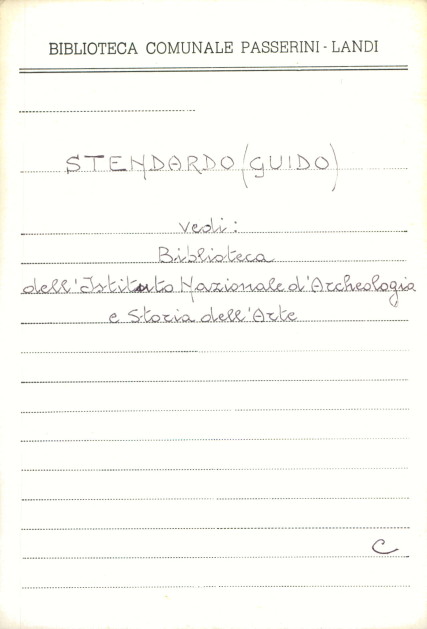 BIBLIOTECA COMUNALE PASSERINI - LANDI
STENDARDO (GUIDO)
vedi:
Biblioteca
dell'Istituto Nazionale d'Archeologia
e Storia dell'Arte
C